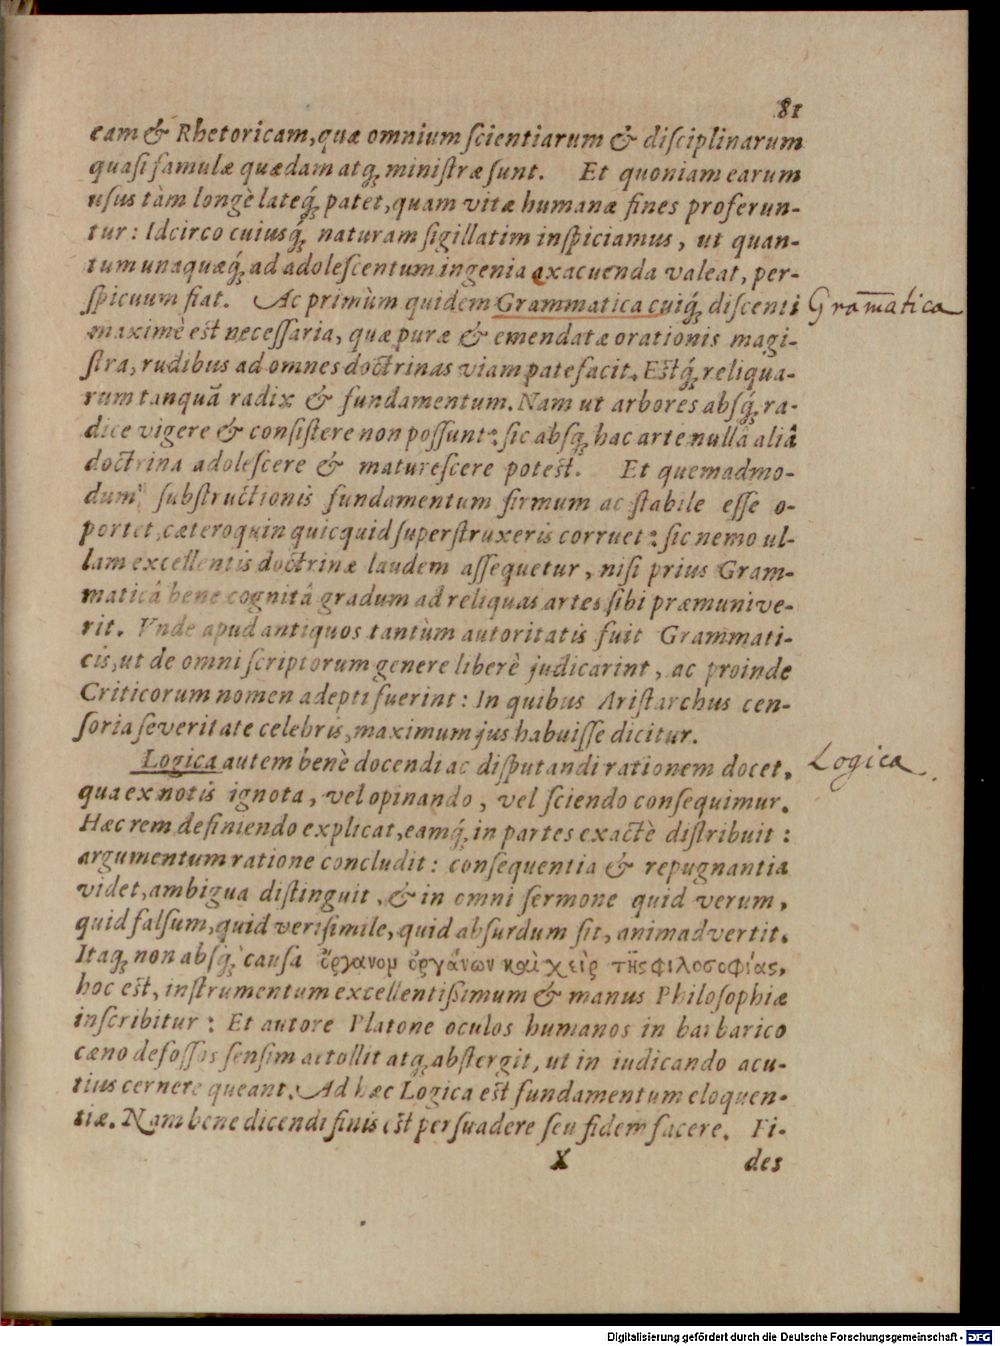 81
eam & Rhetoricam, quæ omnium ſcientiarum & diſciplinarum
quaſi famulæ quædam atq; miniſtræ ſunt. Et quoniam earum
uſus tàm longè lateq́; patet, quam vitæ humanæ fines proferun-
tur: Idcirco cuiusq́; naturam ſigillatim inſpiciamus, ut quan-
tum unaquæq́; ad adoleſcentum ingenia exacuenda valeat, per-
ſpicuum fiat. Ac primùm quidem Grammatica cuiq́; diſcenti
Gram̅atica
maximè est neceſſaria, quæ puræ & emendatæ orationis magi-
ſtra, rudibus ad omnes doctrinas viam patefacit. Estq́; reliqua-
rum tanquã radix & fundamentum. Nam ut arbores absq́; ra-
dice vigere & conſiſtere non poſſunt: ſic absq; hac arte nullâ aliâ
doctrina adoleſcere & matureſcere potest. Et quemadmo-
dum ſubſtructionis fundamentum firmum ac ſtabile eſſe o-
portet, cæteroquin quicquid ſuperſtruxeris corruet: ſic nemo ul-
lam excellentis doctrinæ laudem aſſequetur, niſi prius Gram-
maticâ bene cognitâ gradum ad reliquas artes ſibi præmunive-
rit. Vnde apud antiquos tantùm autoritatis fuit Grammati-
cis, ut de omni ſcriptorum genere liberè judicarint, ac proinde
Criticorum nomen adepti fuerint: In quibus Ariſtarchus cen-
ſoria ſeveritate celebris, maximum jus habuiſſe dicitur.
Logica autem benè docendi ac diſputandi rationem docet,
Logica.
qua ex notis ignota, vel opinando, vel ſciendo conſequimur.
Hæc rem definiendo explicat, eamq́; in partes exactè diſtribuit:
argumentum ratione concludit: conſequentia & repugnantia
videt, ambigua diſtinguit, & in omni ſermone quid verum,
quid falſum, quid veriſimile, quid abſurdum ſit, animadvertit.
Itaq; non absq́; cauſa ὄργανομ ὀργάνων καὶ χεὶρ τῆς φιλοσοφίας,
hoc est, inſtrumentum excellentiſsimum & manus Philoſophiæ
inſcribitur: Et autore Platone oculos humanos in barbarico
cæno defoſſos ſenſim attollit atq; abſtergit, ut in iudicando acu-
tius cernere queant. Ad hæc Logica est fundamentum eloquen-
tiæ. Nam bene dicendi finis est perſuadere ſeu fidem facere. Fi-
X des
Digitalisierung gefördert durch die Deutsche Forschungsgemeinschaft - DFG